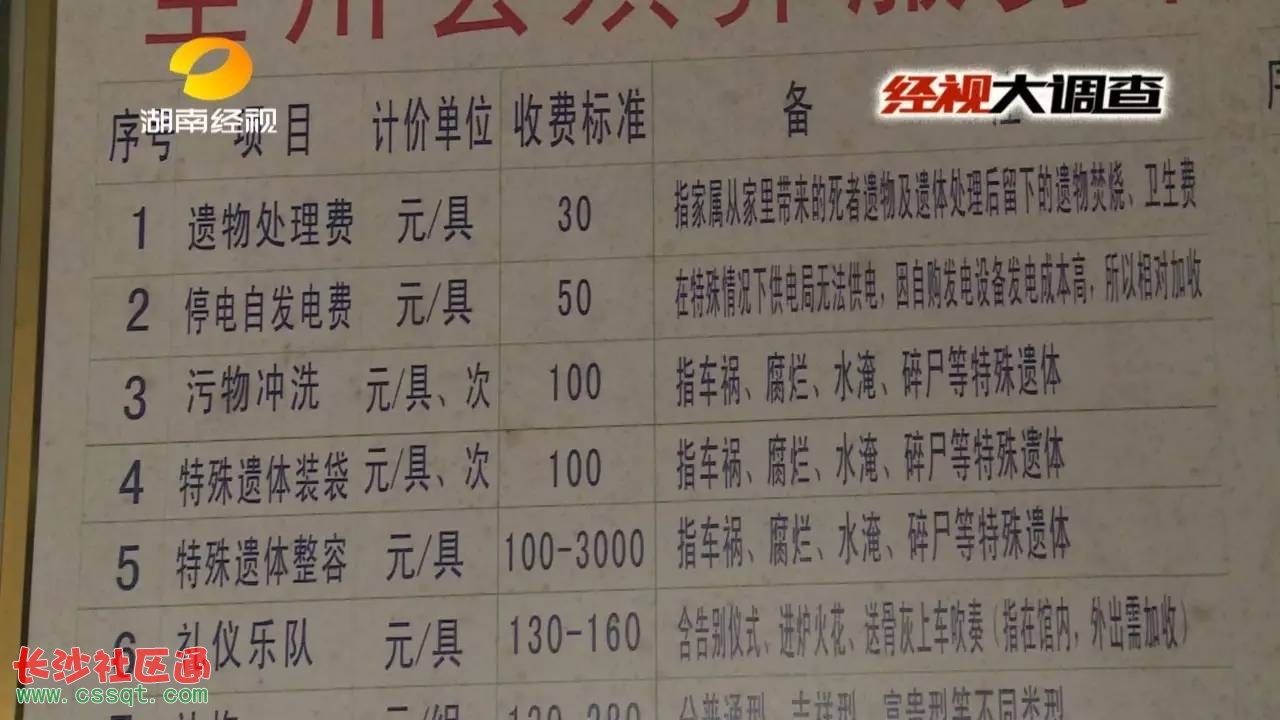 湖南经视
经视大调查
序号 项目 计价单位 收费标准 备
1 遗物处理费 元/具 30 指家属从家里带来的死者遗物及遗体处理后留下的遗物焚烧、卫生费
2 停电自发电费 元/具 50 在特殊情况下供电局无法供电，因自购发电设备发电成本高，所以相对加收
3 污物冲洗 元/具、次 100 指车祸、腐烂、水淹、碎尸等特殊遗体
4 特殊遗体装袋 元/具、次 100 指车祸、腐烂、水淹、碎尸等特殊遗体
5 特殊遗体整容 元/具 100-3000 指车祸、腐烂、水淹、碎尸等特殊遗体
6 礼仪乐队 元/具 130-160 含告别仪式、进炉火花、送骨灰上车吹奏（指在馆内，外出需加收）
元/组 130-380 分普通型、吉祥型、富贵型等不同类型
长沙社区通
www.cssqt.com